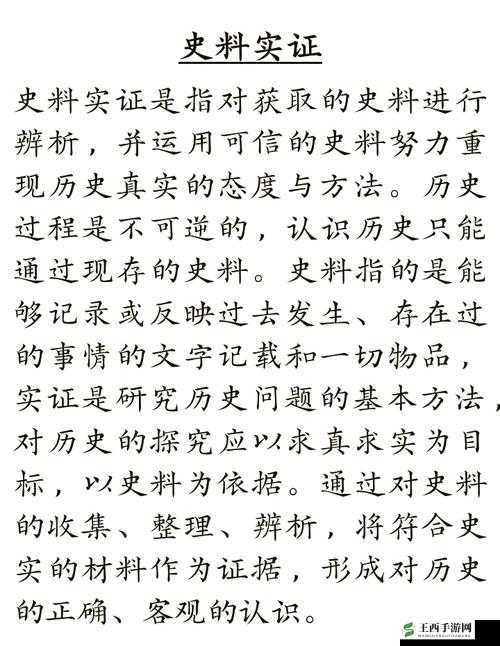 史料实证
史料实证是指对获取的史料进行
辨析，并运用可信的史料努力重
现历史真实的态度与方法。历史
过程是不可逆的，认识历史只能
通过现存的史料。史料指的是能
够记录或反映过去发生、存在过
的事情的文字记载和一切物品，
实证是研究历史问题的基本方法，
对历史的探究应以求真求实为目
标，以史料为依据。通过对史料
的收集、整理、辨析，将符合史
实的材料作为证据，形成对历史
的正确、客观的认识。
王西手游网